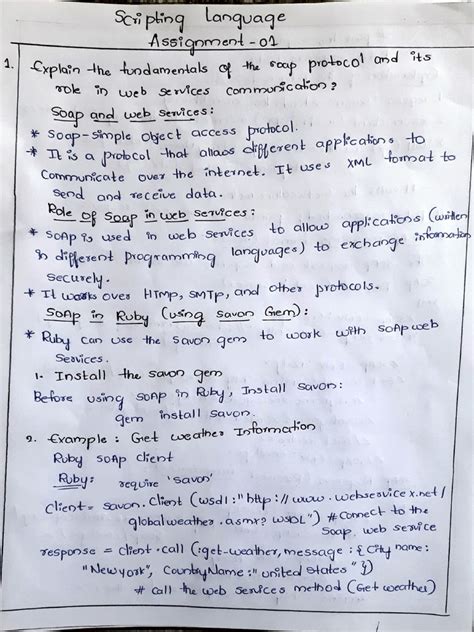 Scripting Language
Assignment-01
1. Explain the fundamentals of the soap protocol and its
role in web services communication?
Soap and web services:
* Soap-simple object access protocol.
* It is a protocol that allows different applications to
communicate over the internet. It uses XML format to
send and receive data.
Role of soap in web services:
* SOAP is used in web services to allow applications (written
in different programming languages) to exchange information
securely.
* It works over HTMP, SMTP, and other protocols.
SOAP in Ruby (using savon Gem):
* Ruby can use the savon gem to work with SOAP web
services.
1. Install the savon gem
Before using soap in Ruby, Install savon:
gem install savon.
2. Example: Get weather Information
Ruby SOAP client
Ruby: require 'savon'
Client = savon.client (wsdl: "http://www.webservicex.net/
globalweather.asmx? WSDL") #Connect to the
Soap web service
response = client.call (:get-weather, message: {City name:
"Newyork", CountryName: "united states"})
# call the web services method (Get weather)